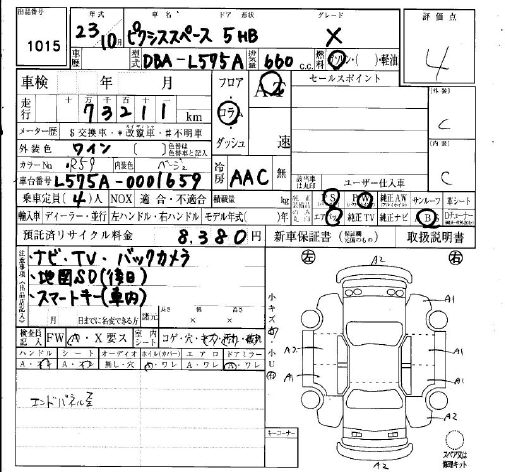 出品番号 年式 車名 ドア 形状 グレード 評価点
1015 23年10月 ピクシススペース 5HB X 4
車歴 型式 DBA-L575A 排気量 660 c.c. 燃料 ガソリン・( )・軽油
車検 年 月 フロア A2 セールスポイント
走行 十万千百十一 73211 km コラム
外装 C
メーター歴 $交換車・*改竄車・#不明車 ダッシュ 速
外装色 ワイン 色替 内装 C
カラーNo. R59 内装色 ベージュ 冷房 AAC 無
車台番号 L575A-0001659 ユーザー仕入車
乗車定員(4)人 NOX 適合・不適合 積載量 kg SR PW 純正AW サンルーフ 革シート
輸入車 ディーラー・並行 左ハンドル・右ハンドル モデル年式( )年 エアB 純正TV 純正ナビ B
預託済リサイクル料金 8,380円 新車保証書 取扱説明書
注意事項
・ナビ・TV・バックカメラ
・地図SD(後日)
・スマートキー(車内)
月 日までに名変できる方 諸元 長さ 幅 高さ
検査員記入 FW X要ス 室内シート コゲ・穴
ハンドル シート オーディオ ホイル(カバー) エアロ ドアミラー
無し・穴 ワレ ワレ
エンドパネル歪
キーコーナー
左 右
小キズ 小U
A2
A1
A2
A1
A1
A1
A2
A2
スペアタイヤ又は修理キット